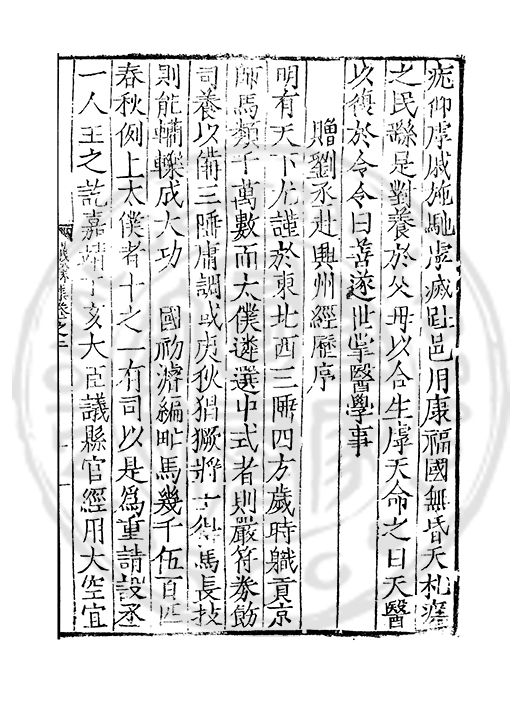 仰虖戚施馳虖趾邑用康福國無昏天札
之民繇是對養於父母以合生虖天命之曰天醫
以復於令令曰善遂世掌醫學事
贈劉丞赴興州經歷序
明有天下尤謹於東北西三陲四方歲時職貢京
師馬類千萬數而太僕遴選中式者則嚴符劵飭
司養以備三陲庸調或夷狄猖獗將士得馬長技
則能轥轢成大功　國初濬編畝馬幾千伍百匹
春秋例上太僕者十之一有司以是爲重請設丞
一人主之訖嘉靖丁亥大臣議縣官經用大空宜
卷之二